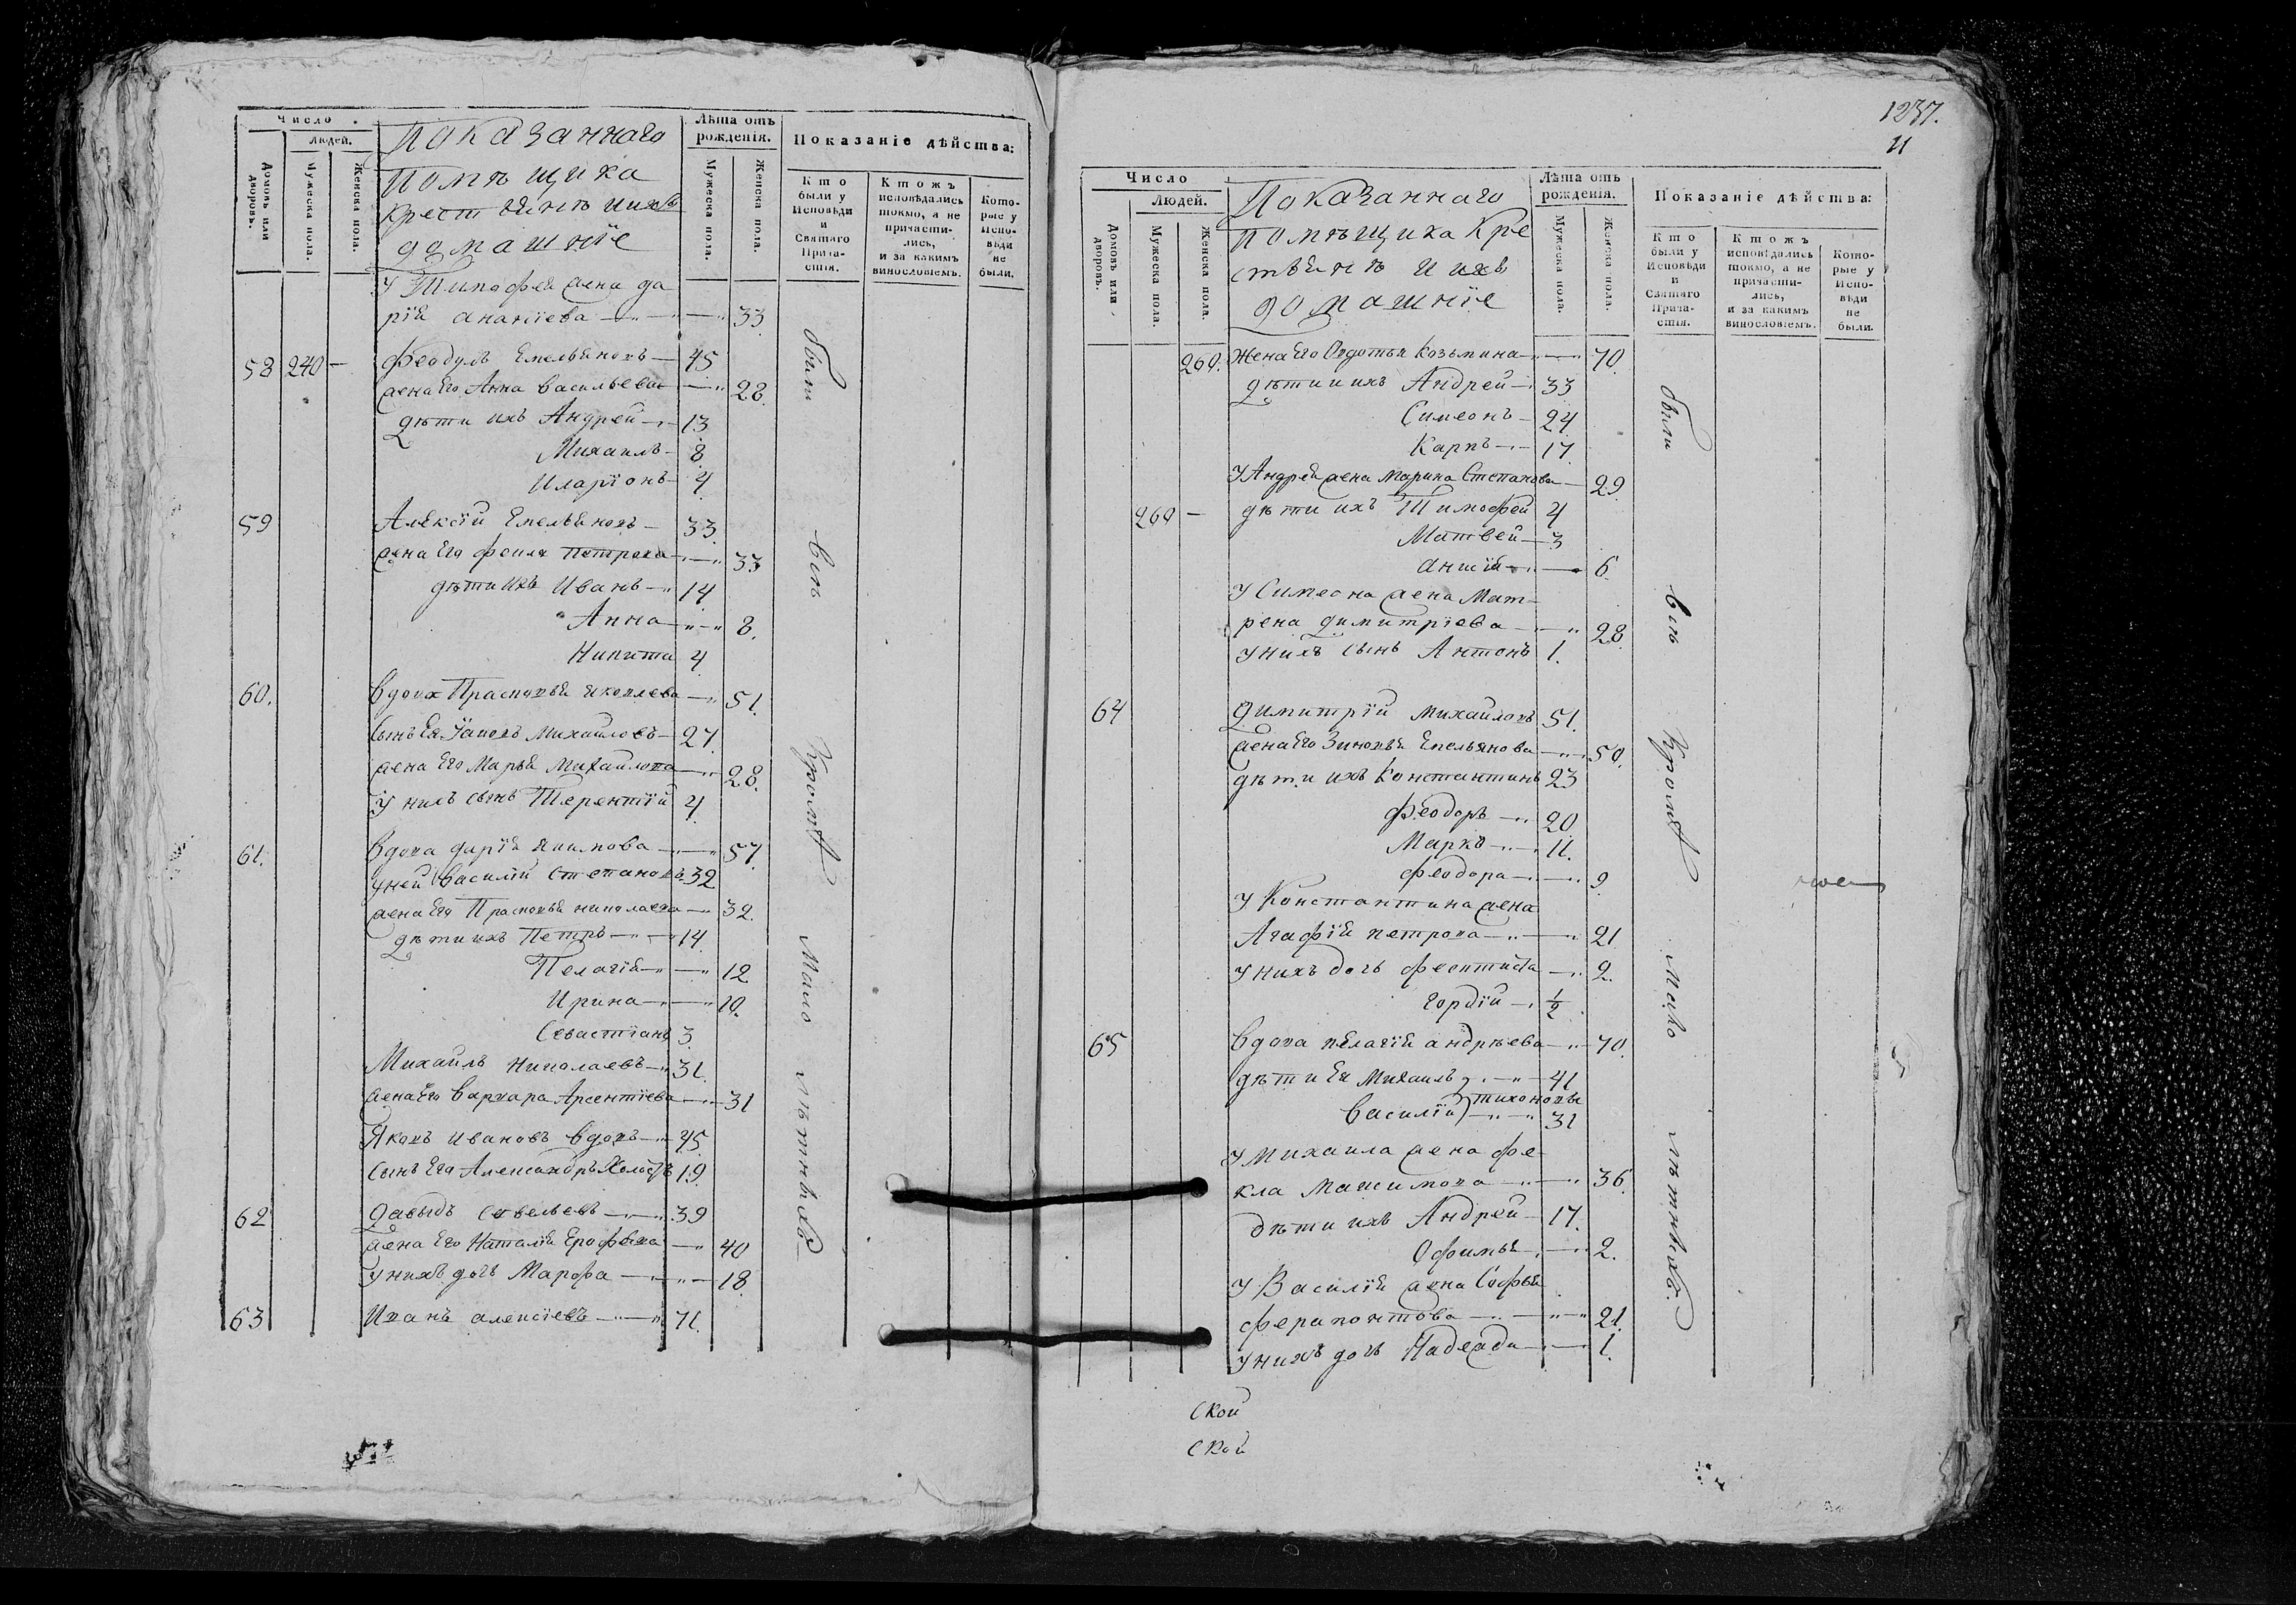 Число
людей.
Домовъ или дворовъ.
Мужеска пола.
Женска пола.
Показаннаго
Помѣщика
Крестьянѣ иихъ
домашнїе
Лѣта отъ рожденія.
Мужеска пола.
Женска пола.
Показаніе дѣйства:
Кто были у Исповѣди и Святаго Прича-стія.
Ктожъ исповѣдались токмо, а не причасти-лись, и за какимъ винословіемъ.
Кото-рые у Испо-вѣди не были.
У Тимофея жена да
рїя Ананїева 33
58 240 — Феодулъ Емельяновъ 45
жена Его Анна Васильева 28.
дѣти ихъ Андрей 13
Михаилъ 8
Иларїонъ 4
59 Алексїй Емельяновъ 33.
жена Его Петрова 33
дѣти ихъ Иванъ 14
Анна 8.
Никита 4
60. Вдова Прасковья Яковлева 51.
сынъ Ея Михайловъ 27.
жена Его Марья Михайлова 28.
У нихъ сынъ Терентїй 4
61. Вдова Дарїя Якимова 57.
у ней Василїй Степановъ 32
жена Его Прасковья Николаева 32.
дѣти ихъ Петръ 14
Пелагїя 12
Ирина 10.
Севастїанъ 3
Михаилъ Николаевъ 31.
жена Его Варвара Арсентїева 31
Яковъ Ивановъ вдовъ 45
сынъ Его Александръ Холостъ 19.
62 Давыдъ Савельевъ 39
жена Его Наталїя Ерофѣева 40
У нихъ дочь Марфа 18.
63 Иванъ Алексїевъ 71.
были всѣ Кромѣ Мало лѣтнѣхъ
1237.
11
Число
Людей.
Домовъ или дворовъ.
Мужеска пола.
Женска пола.
Показаннаго
помѣщика Кре
стьянѣ и ихъ
домашнїе
Лѣта отъ рожденія.
Мужеска пола.
Женска пола.
Показаніе дѣйства:
Кто были у Исповѣди и Святаго Прича-стія.
Ктожъ исповѣдались токмо, а не причасти-лись, и за какимъ винословіемъ.
Кото-рые у Испо-вѣди не были.
260. Жена Его Овдотья Козьмина 70.
дѣти ихъ Андрей 33
Симеонъ 24
Карпъ 17.
У Андрея жена Марина Степанова 29.
260 — дѣти ихъ Тимофей 4
Матвей 3
6.
У Симеона жена Мат-
рена Димитрїева 28.
У нихъ сынъ Антонъ 1.
64 Димитрїй Михайловъ 51.
жена Его Зиновья Емельянова 50.
дѣти ихъ Константинъ 23
Феодоръ 20
Маркъ 11.
Феодора 9
У Константина жена
Агафїя Петрова 21
У нихъ дочь Феоктиста 2.
Гордїй ½
65 Вдова Пелагїя Андрѣева 70.
дѣти Ея Михаилъ 41
Василїй Тихоновы 31
У Михаила жена Фе-
кла Максимова 36.
дѣти ихъ Андрей 17.
Офимья 2.
У Василїя жена Софья
Ферапонтова 21.
У нихъ дочь Надежда 1.
были всѣ Кромѣ Мало лѣтнѣхъ
ской
ской